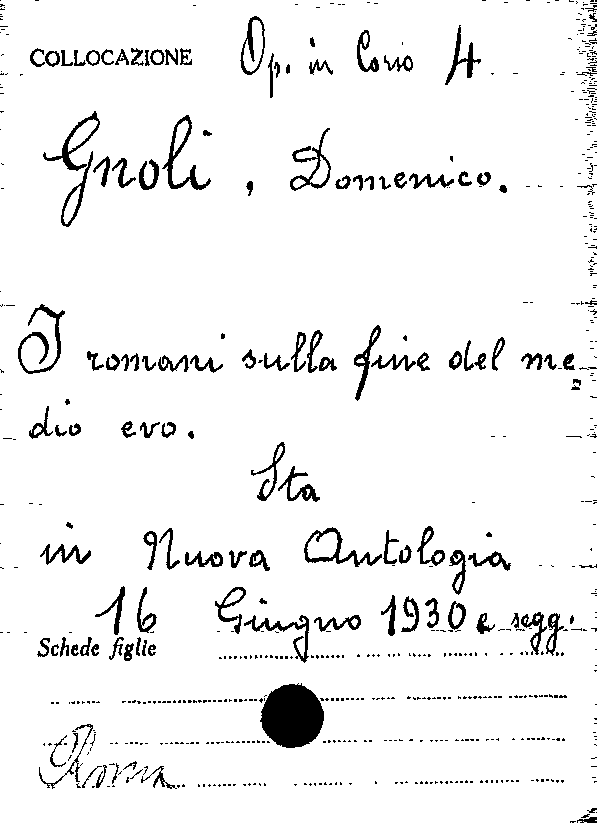 COLLOCAZIONE Op. in Corso 4
Gnoli, Domenico.
I romani sulla fine del me=
dio evo.
Sta
in Nuova Antologia
16 Giugno 1930 e segg.
Schede figlie
Roma